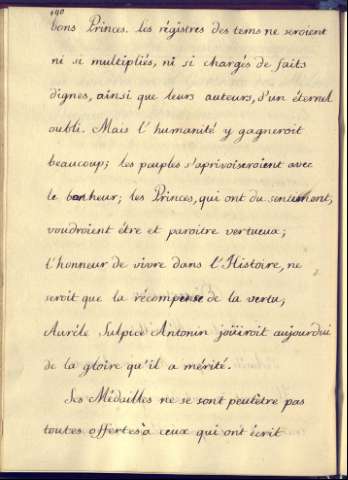 140
bons Princes. les régistres des tems ne seroient
ni si multipliés, ni si chargés de faits
dignes, ainsi que leurs auteurs, d'un éternel
oubli. Mais l'humanité y gagneroit
beaucoup; les peuples s'aprivoiseroient avec
le bonheur; les Princes, qui ont du sentiment,
voudroient être et paroitre vertueux;
l'honneur de vivre dans l'Histoire, ne
seroit que la récompense de la vertu;
Auréle Sulpice Antonin joüiroit aujourdui
de la gloire qu'il a mérité.
Ses Médailles ne se sont peutêtre pas
toutes offertes à ceux qui ont écrit